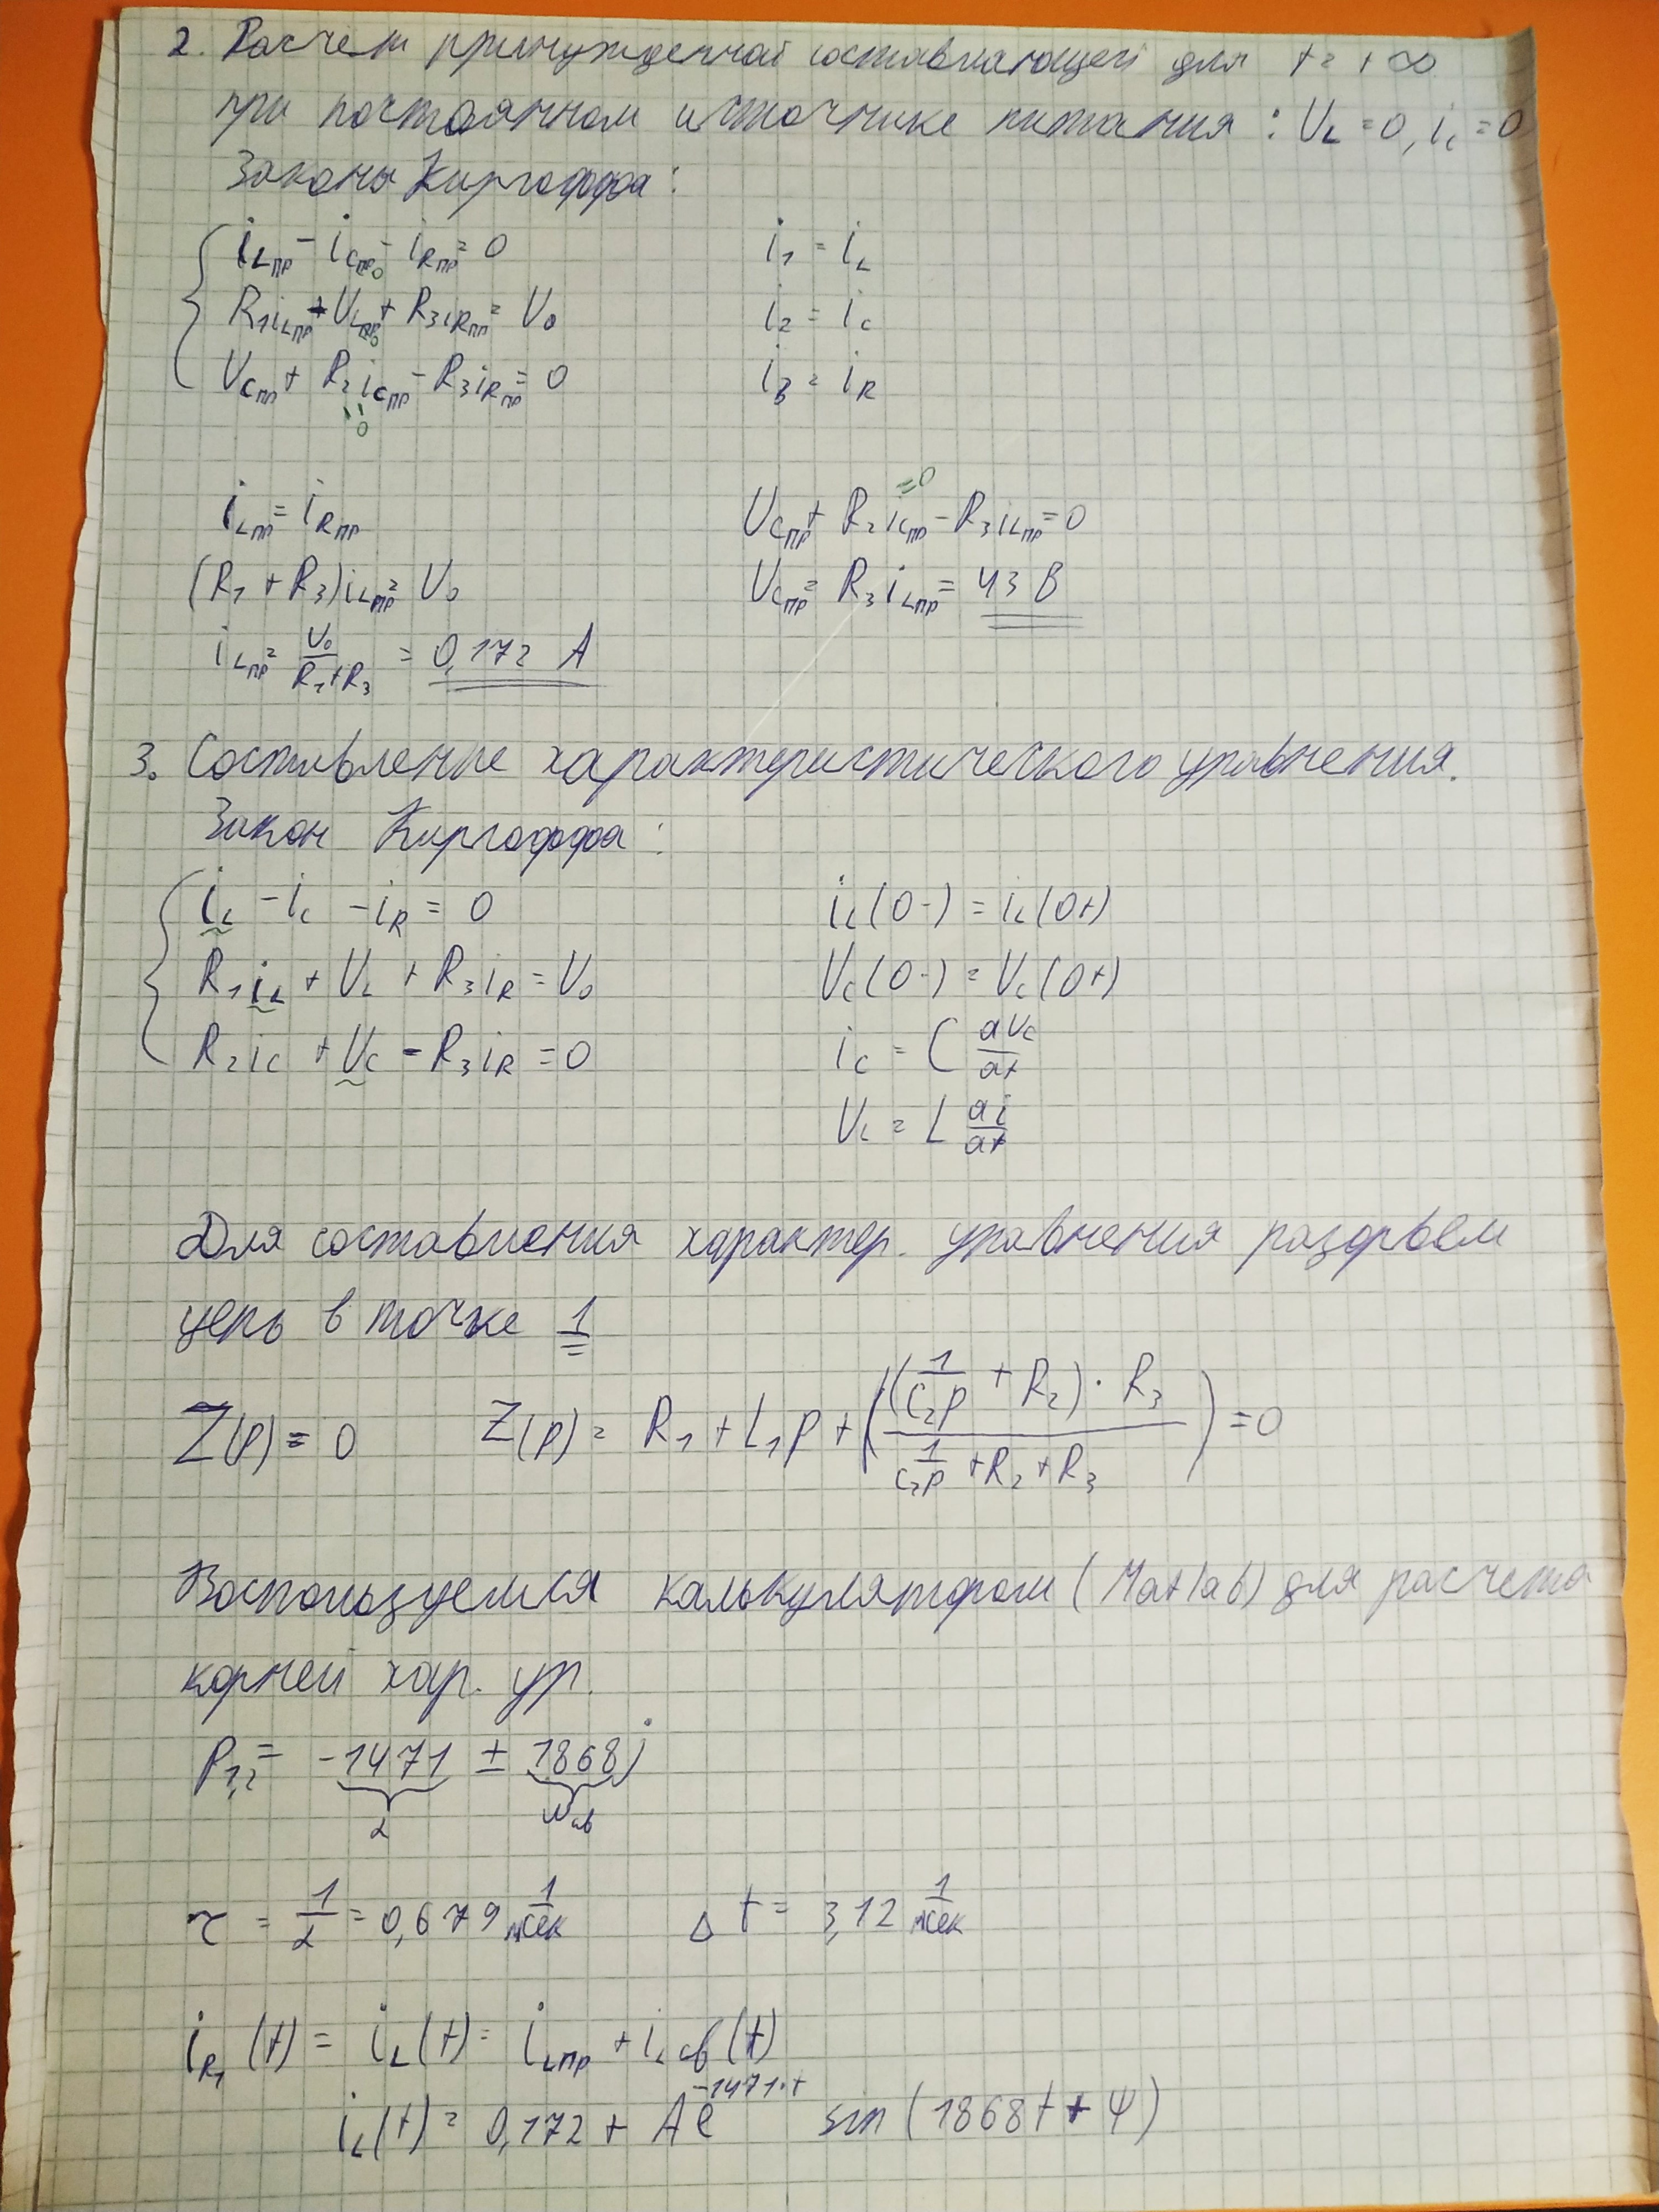 2. Расчет принужденной составляющей для t = +∞
при постоянном источнике питания : U_L = 0, i_C = 0
Законы Кирхоффа :
i_Lпр − i_Cпр − i_Rпр = 0	i_1 = i_L
R_1 i_Lпр + U_Lпр + R_3 i_Rпр = U_0	i_2 = i_C
U_Cпр + R_2 i_Cпр − R_3 i_Rпр = 0	i_3 = i_R
i_Lпр = i_Rпр	U_Cпр + R_2 i_Cпр − R_3 i_Lпр = 0
(R_1 + R_3) i_Lпр = U_0	U_Cпр = R_3 i_Lпр = 43 В
i_Lпр = U_0 / (R_1 + R_3) = 0,172 А
3. Составление характеристического уравнения.
Закон Кирхоффа :
i_L − i_C − i_R = 0	i_L(0−) = i_L(0+)
R_1 i_L + U_L + R_3 i_R = U_0	U_C(0−) = U_C(0+)
R_2 i_C + U_C − R_3 i_R = 0	i_C = C dU_C/dt
U_L = L di/dt
Для составления характер. уравнения разорвем
цепь в точке 1
Z(p) = 0	Z(p) = R_1 + L_1 p + (((1/(C_2 p) + R_2) · R_3) / (1/(C_2 p) + R_2 + R_3)) = 0
Воспользуемся калькулятором (Matlab) для расчета
корней хар. ур.
p_1,2 = −1471 ± 1868j
α	ω_св
τ = 1/α = 0,679 1/мсек	Δt = 3,12 1/мсек
i_R1(t) = i_L(t) = i_Lпр + i_Lсв(t)
i_L(t) = 0,172 + A e^(−1471·t) sin(1868t + Ψ)